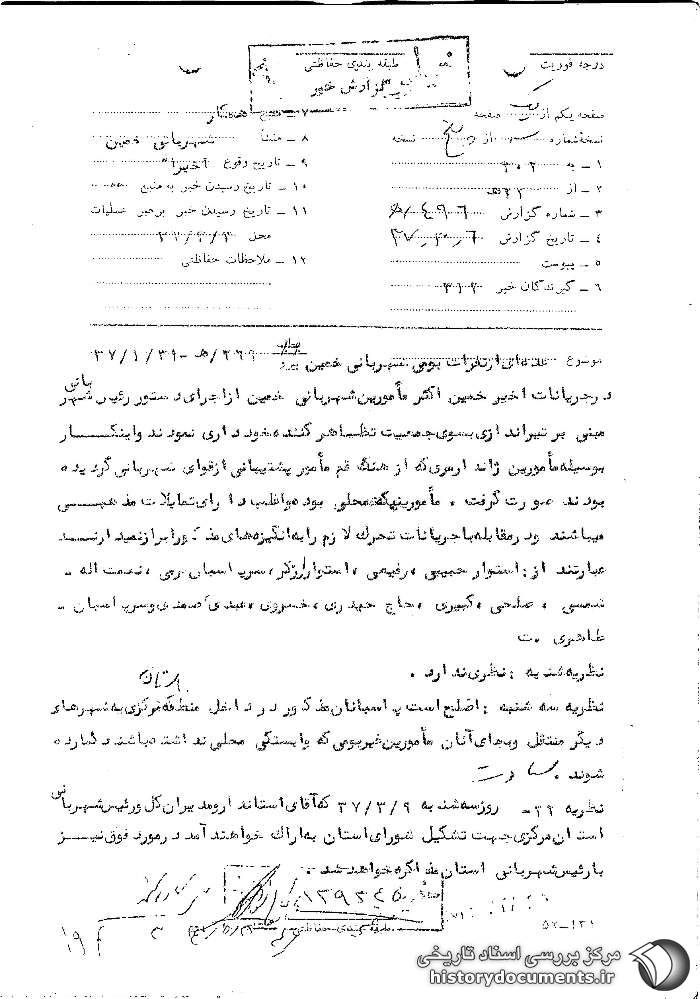 درجه فوریت
طبقه بندی حفاظتی
گزارش خبر
صفحه یکم از صفحه
نسخه شماره از نسخه
۱ ـ به ۳۰۲
۲ ـ از ۲۲ هـ
۳ ـ شماره گزارش
۴ ـ تاریخ گزارش ۳۷٫۳٫۶
۵ ـ پیوست
۶ ـ گیرندگان خبر ۳۱۲
۷ ـ منبع همکار
۸ ـ منشأ شهربانی خمین
۹ ـ تاریخ وقوع اخیراً
۱۰ ـ تاریخ رسیدن خبر به منبع
۱۱ ـ تاریخ رسیدن خبر برهبر عملیات
محل
۱۲ ـ ملاحظات حفاظتی
موضوع عده‌ای از نفرات بومی شهربانی خمین
درجریانات اخیر خمین اکثر مأمورین شهربانی خمین ازاجرای دستور رئیس شهربانی
مبنی بر تیراندازی بسوی جمعیت تظاهر کننده خودداری نمودند واینکــار
بوسیله مأمورین ژاندارمری که از هنگ قم مأمور پشتیبانی ازقوای شهربانی گردیده
بودند صورت گرفت . مأمورینیکه محلی بوده واغلب دارای تمایلات مذهبــی
میباشند ودرمقابله باجریانات تحرک لازم رابه انگیزه‌های مذکورابرازنمیدارنــد
عبارتند از: استوار حبیبی ، رفیعی ، استوار ، سرپاسبان ، نعمت اله ـ
شمسی ، صلحی ، کبیری ، حاج حیدری ، خسروی ، عبدی صمدی وسرپاسبان ـ
طاهری . ت
نظریه شنبه : نظری ندارد .
نظریه سه شنبه : اصلح است پاسبانان مذکور در داخل منطقه استان مرکزی به شهرهای
دیگر منتقل وبجای آنان مأمورین غیربومی که وابستگی محلی نداشته باشند گمارده
شوند .
نظریه ۲۲هـ روز سه شنبه ۳۷/۳/۹ که آقای استاندار ومدیران کل ورئیس شهربانی
استان مرکزی جهت تشکیل شورای استان به اراک خواهند آمد درمورد فوق نیــز
بارئیس شهربانی استان مذاکره خواهد شد .
طبقه بندی حفاظتی
۵۲ـ۱۳۱
مرکز بررسی اسناد تاریخی
historydocuments.ir